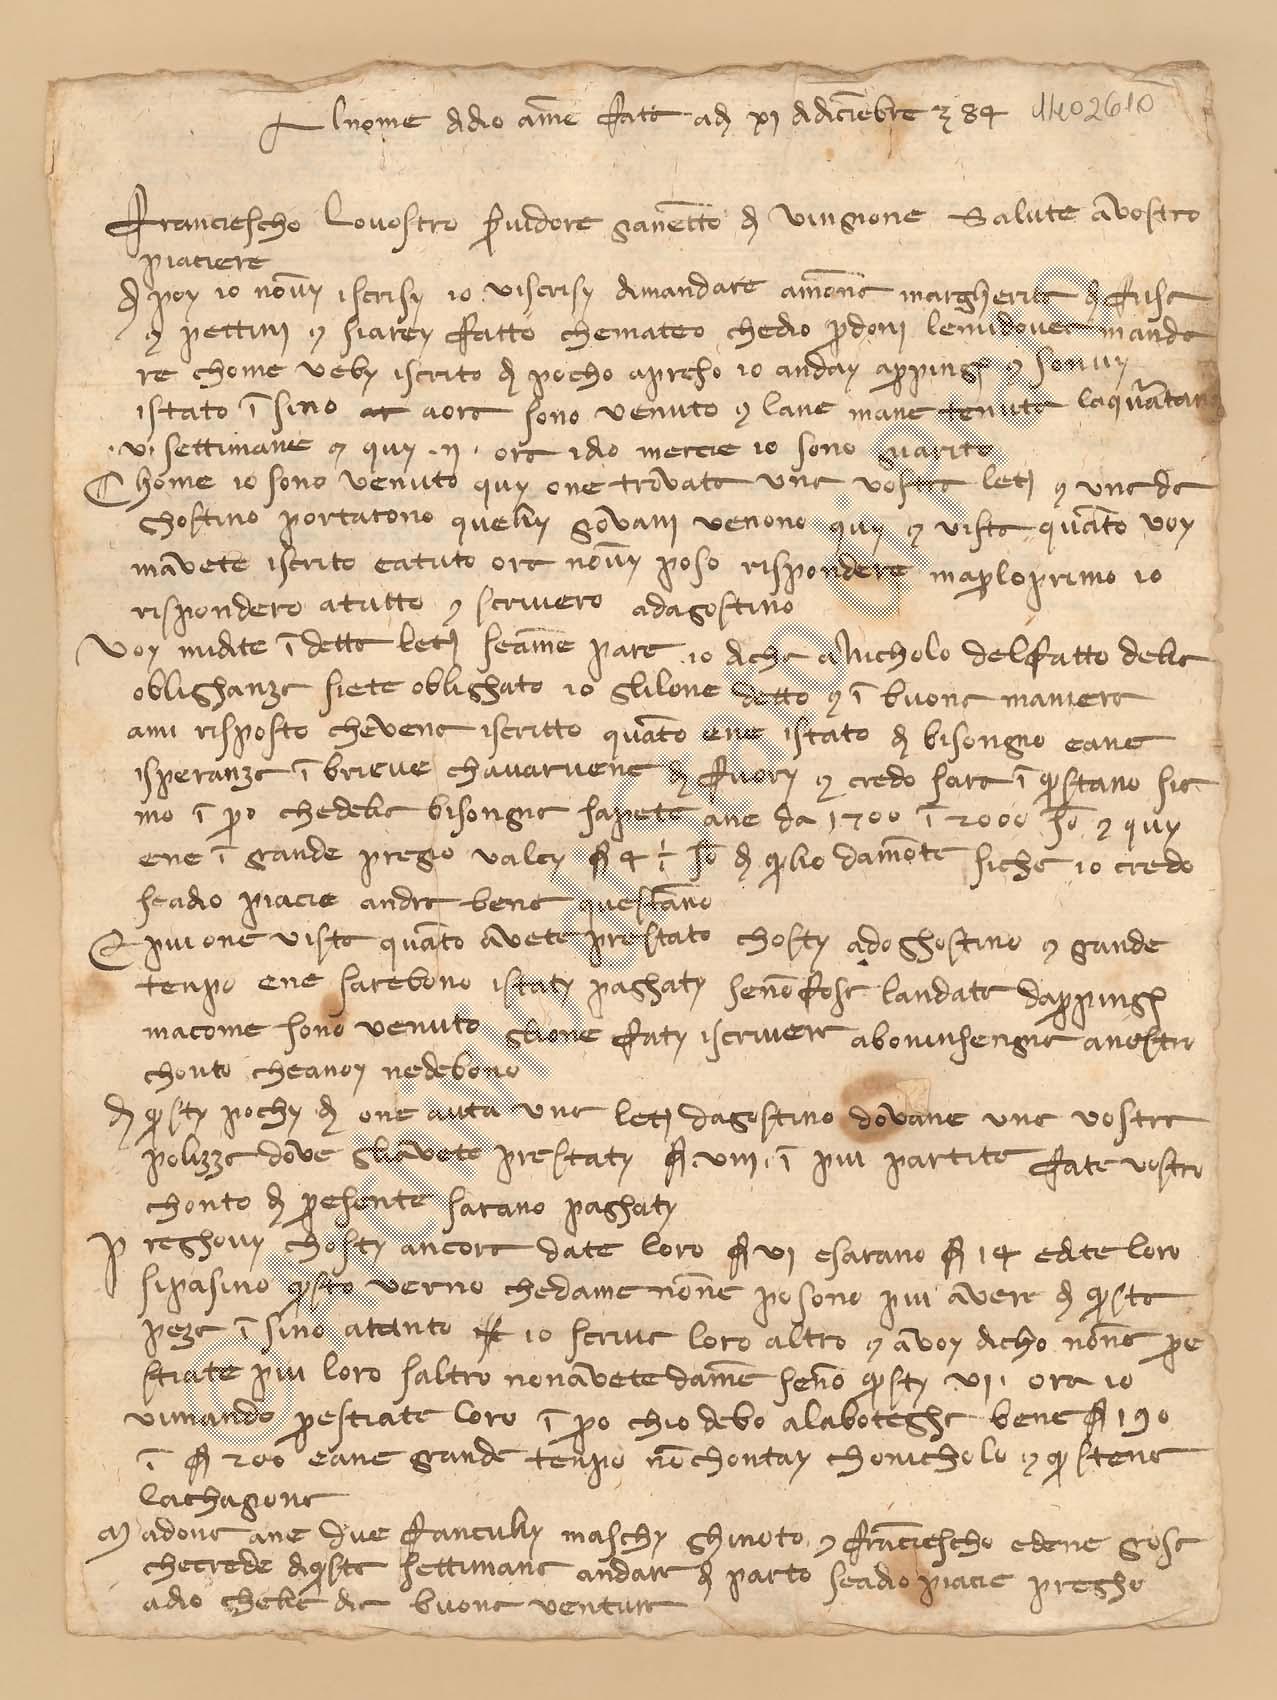 Al nome didio ame fatt adj xj di diciembre 384
1402610
Francescho lo vostro svidore ganetto di vingione salute a vostro
piaciere
di poy io nō vy iscrisy io viscrisy dimandare a mona margherita di fusa
e pettini e siarey fatto che mateo che dio pdoni le mi dovea manda
re chome veby iscrito di pocho apreso io anday e son vy
istato ī sino aora sono venuto e l ane mane tenuta la quarātana
vj settimane e quy ora idio mercie io sono guarito
Chome io sono venuto quy one trovata una vostra letj e una da
ghostino portatono quelly govani venono quy e vista quāto voy
mavete iscrito e a tuto ora nō vy poso rispondere ma plo primo io
rispondero a tutto e scrivero ad agostino
Voy mi dite ī detta letj se a me pare io dicha a Nicholo del fatto dela
oblighanza siete oblighato io glilone detto e ī buona maniera
ami risposto che vena iscritto quāto ene istato di bisongno e ane
isperanza ī brieve di fuory e credo sara ī questano sia
mo ī po che dela bisongna sapete ane da 1700 ī 2000 e quy
ene ī grande pregio valey 4 ½ di quelio damōte siche io credo
se a dio piacie andra bene questano
E piu one vista quāto avete prestato chosty ad oghostino e grande
tenpo ene sarebono istaty paghaty se nō fose landata
ma come sono venuto glione faty iscrivere a boninsengna a vostro
chonto che a noy ne debono
di questy pochy dj one auta una letj dagostino dovane una vostra
polizza dove gliavete prestaty viij ī piu partite fate vostro
chonto di presente sarano paghaty
Preghovy chosty ancora date loro vj e sarano 14 e dite loro
si pasino questo verno che da me none posono piu avere di questa
peza ī sino a tanto io scriva loro altro e a voy dicho nōne pre
stiate piu loro saltro non avete da me se nō questy vj ora io
vi mando prestiate loro ī po chio debo a la botegha bene 190
ī 200 e ane grande tenpo nō chontay cho nicholo e questene
la chagione
Madona ane due fanciully maschy ghinoto e francescho ed ene grosa
che crede di questa settimana andare di parto se a dio piacie pregho
a dio chela dia buona ventura